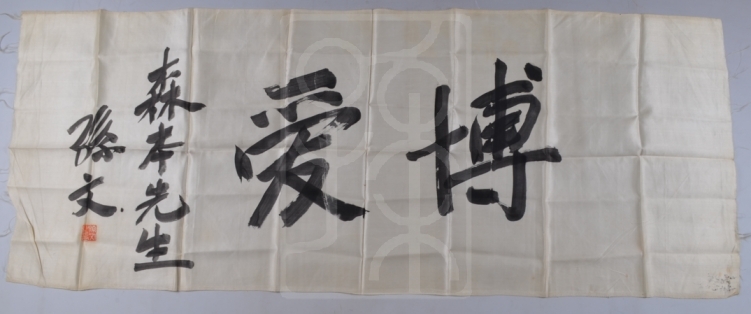 博愛
森本先生
孫文